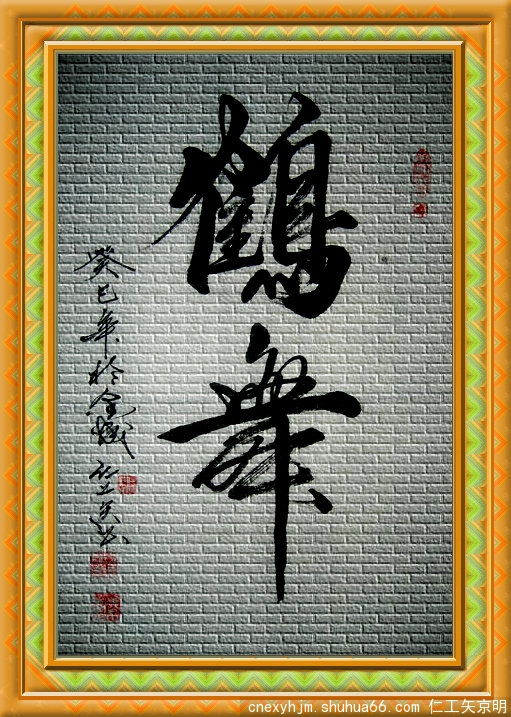 鶴舞
癸巳年於金城
cnexyhjm.shuhua66.com 仁工矢京明